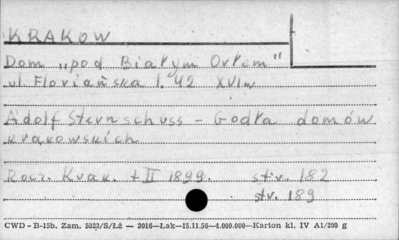 KRAKOW
Dom "pod Białym Orłem"
ul. Floriańska l. 42 XVI w
Adolf Sternschuss - Godła domów
krakowskich
Rocz. Krak. t II 1899. str. 182
str. 189
CWD - B-15b. Zam. 5323/S/Łż — 3016—Łak—15.11.56—4.000.000—Karton kl. IV A1/200 g